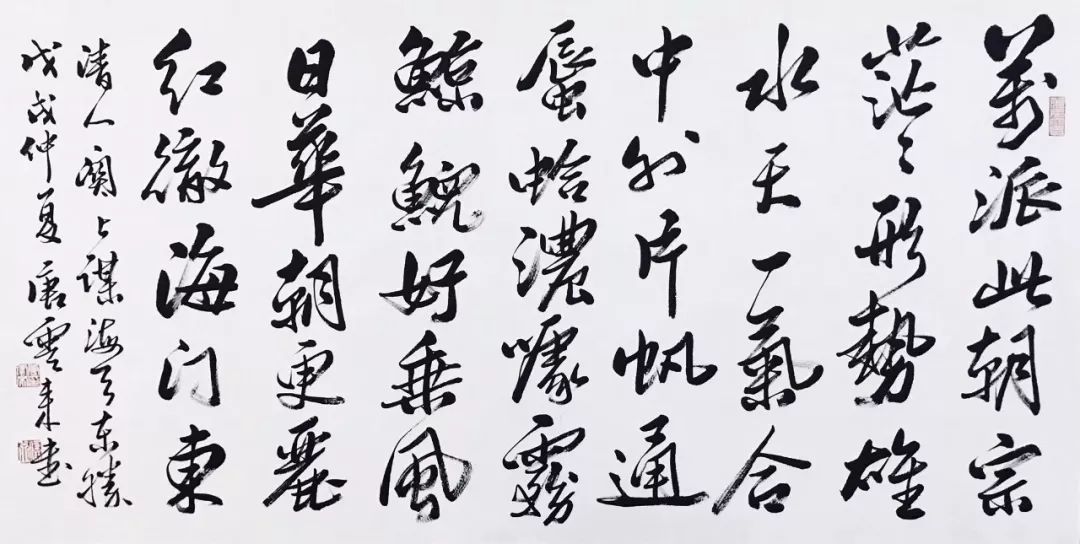 萬派此朝宗
茫々形勢雄
水天一氣合
中外片帆通
蜃蛤濃噓霧
鯨鯢好乘風
日華朝更麗
红徹海门東
清人關上谋海天东勝
戊戌仲夏唐雲来書